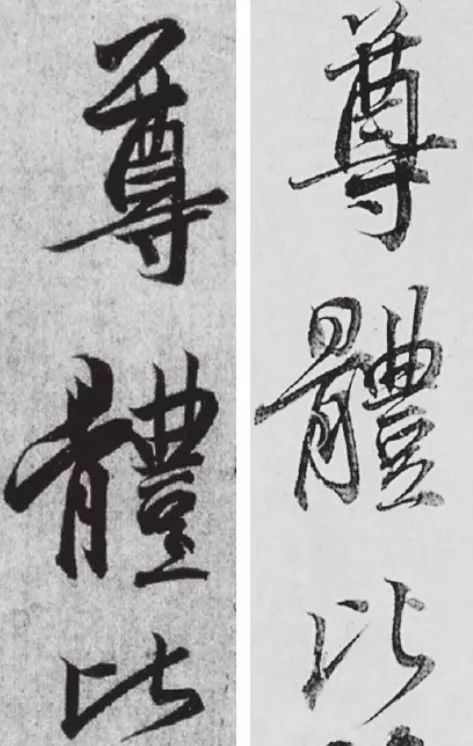 尊體比
尊體比